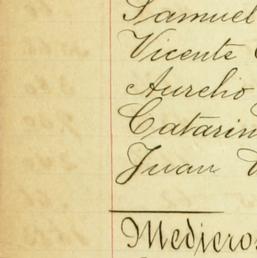 Samuel
Vicente
Aurelio
Catarin
Juan
Mediero